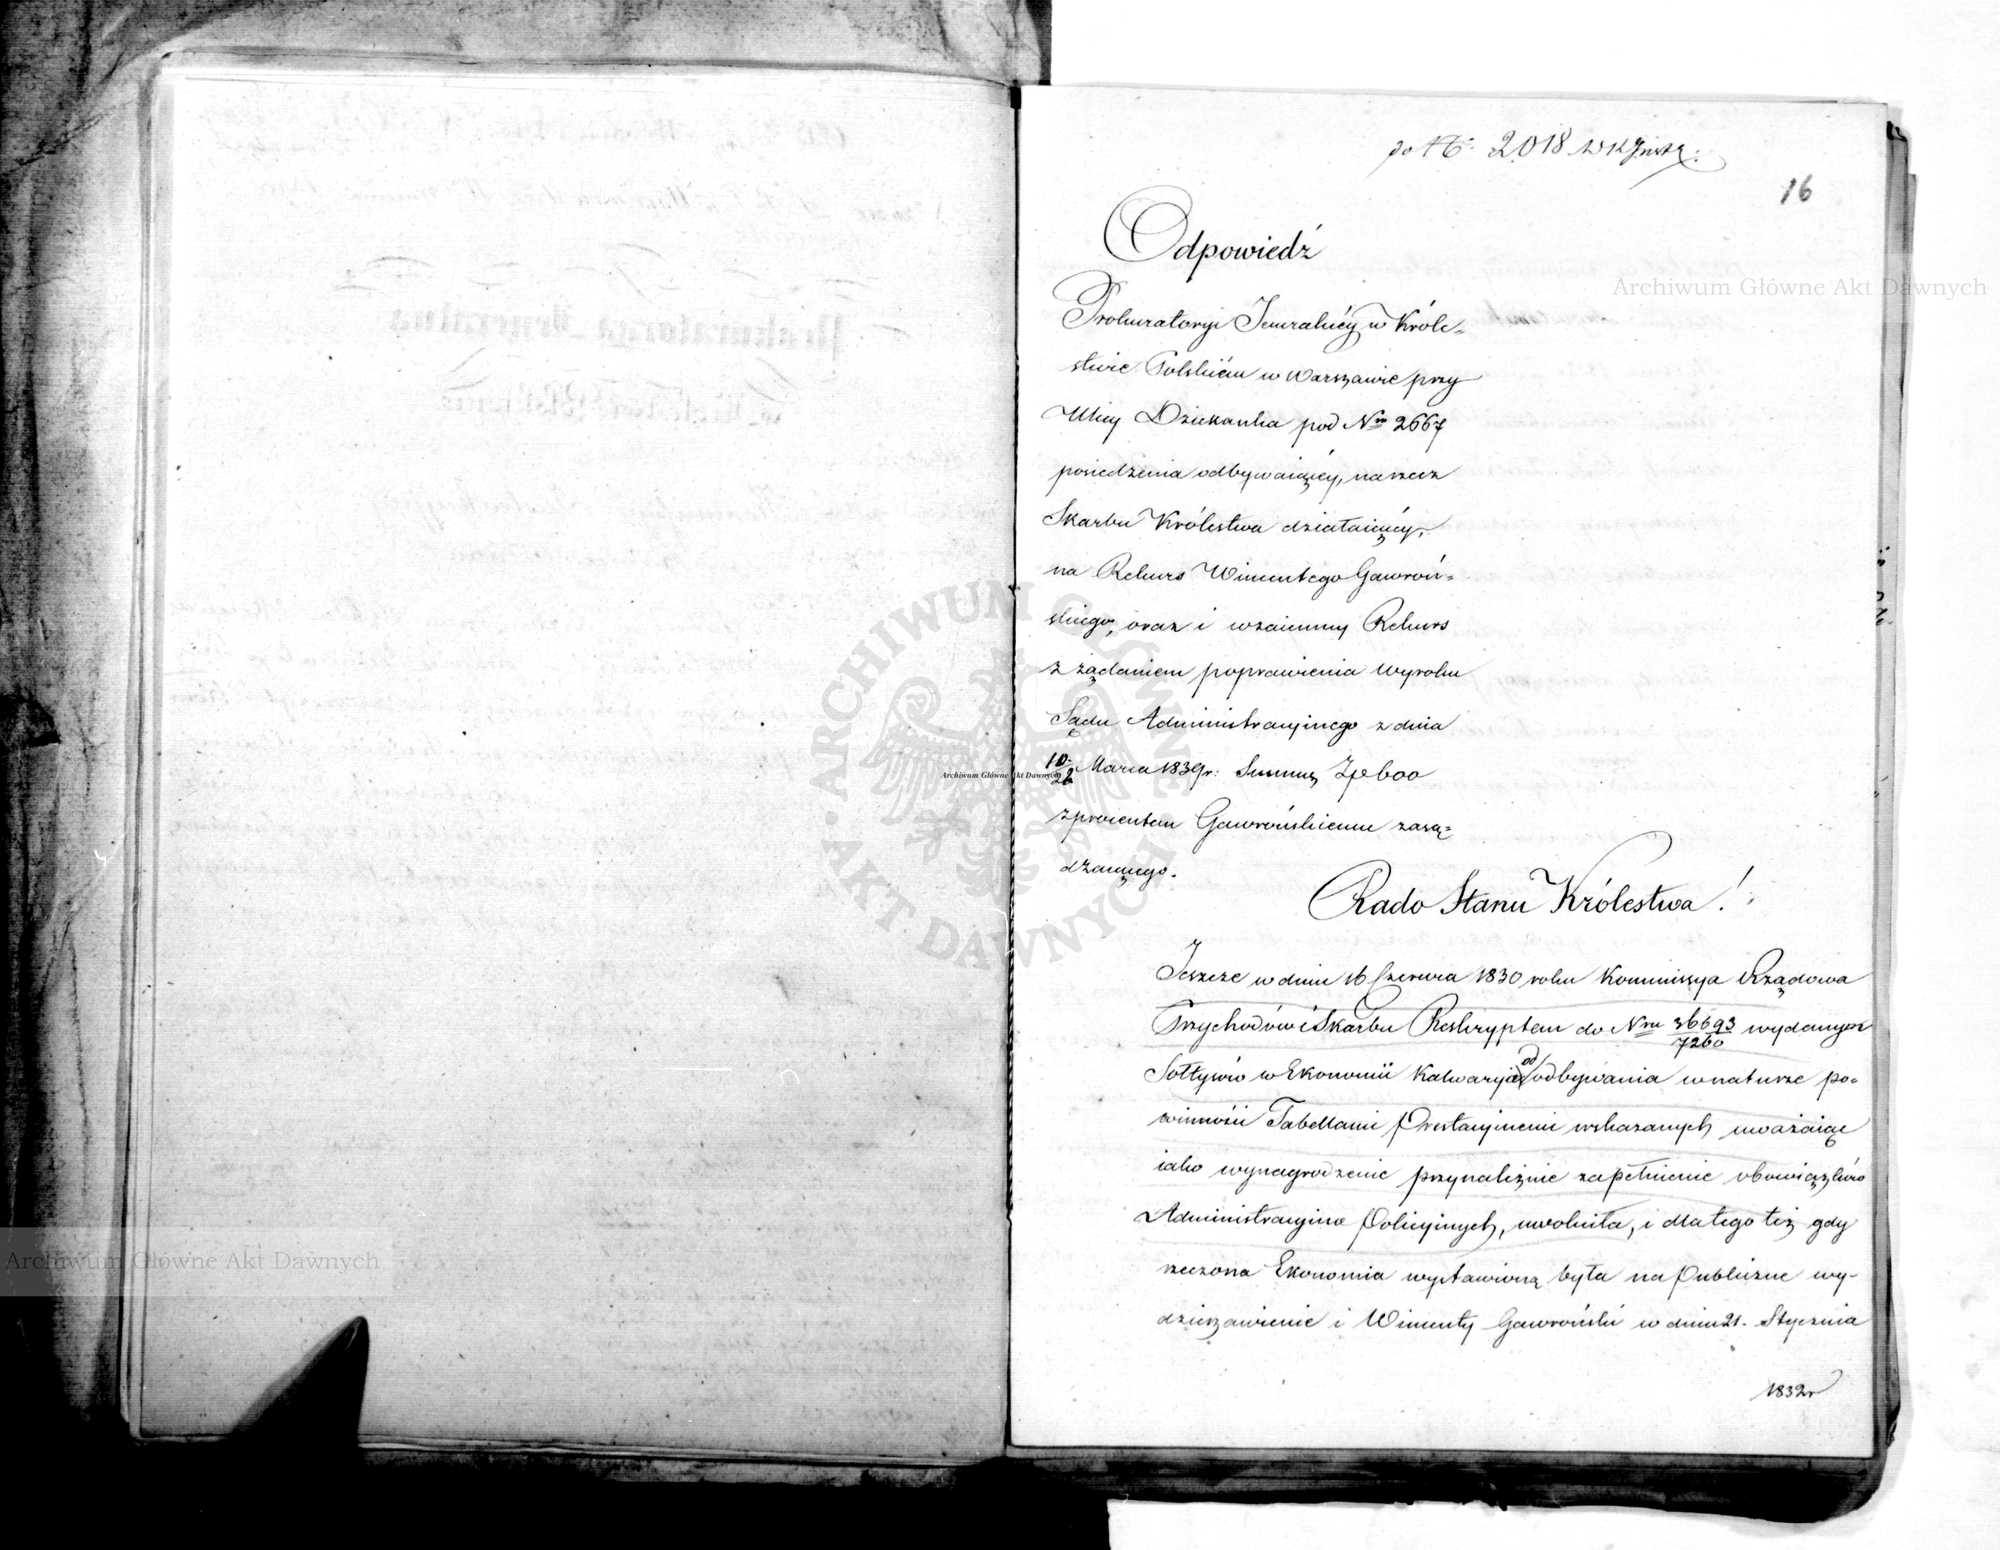 do N 2018
16
Odpowiedź
Prokuratoryi Jeneralnéy w Króle-
stwie Polskiém w Warszawie przy
Ulicy Dziekanka pod Nrm 2667
posiedzenia odbywaiącéy, na rzecz
Skarbu Królestwa działaiącéy,
na Rekurs Wincentego Gawroń-
skiego, oraz i wzaiemny Rekurs
z żądaniem poprawienia Wyroku
Sądu Administracyinego z dnia
10/22 Marca 1839 r: Summę Złp 600
z procentem Gawrońskiemu zasą-
dzaiącego.
Rado Stanu Królestwa!
Jeszcze w dniu 16 Czerwca 1830 roku Kommissya Rządowa
Przychodów i Skarbu Reskryptem do Nru 36693/7260 wydanym
Sołtysów w Ekonomii Kalwarya od odbywania w naturze po-
winności Tabellami Prestacyinemi wskazanych uważaiąc
iako wynagrodzenie przynależnie zapełnienie obowiązków
Administracyino Policyinych, uwolniła, i dla tego też gdy
rzeczona Ekonomia wystawioną była na Publiczne wy-
dzierżawienie i Wincenty Gawroński w dniu 21. Stycznia
1832 r
Archiwum Główne Akt Dawnych
Archiwum Główne Akt Dawnych
Archiwum Główne Akt Dawnych
ARCHIWUM GŁÓWNE AKT DAWNYCH